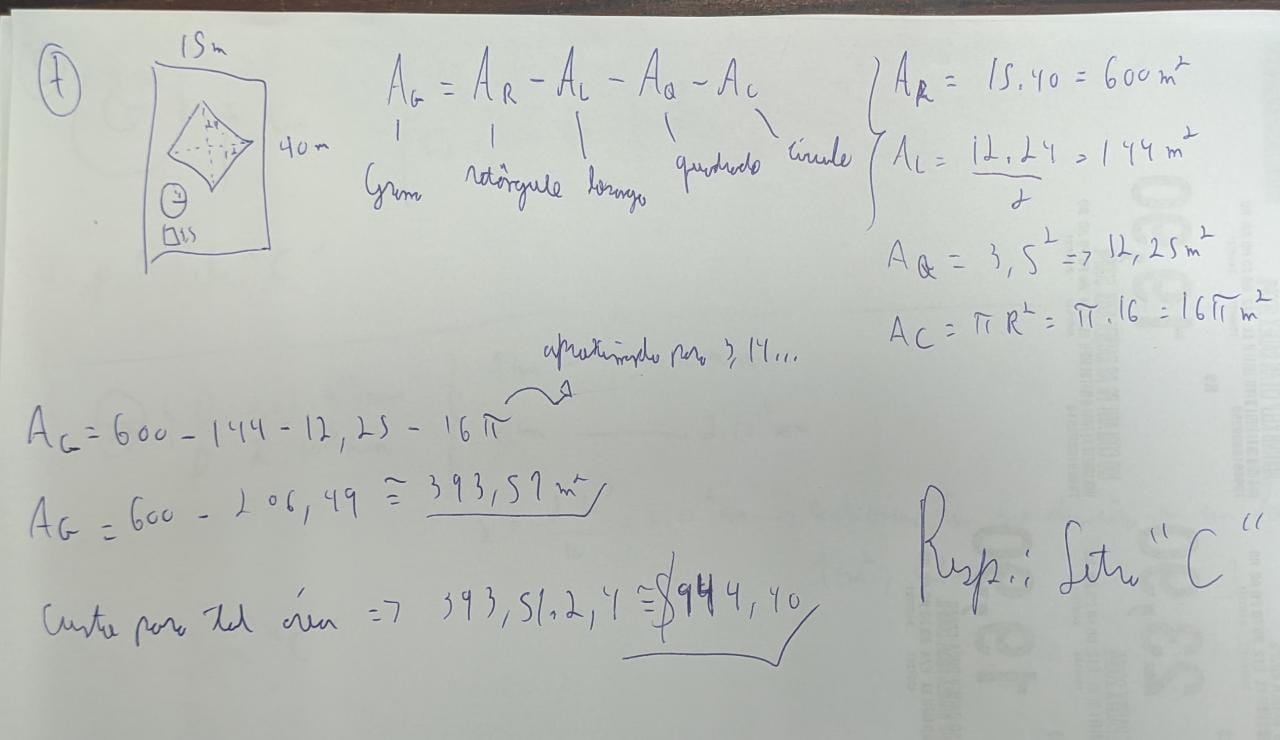 7
15m
40m
24
12
4
3,5
A_G = A_R - A_L - A_Q - A_C
Grama retângulo losango quadrado círculo
A_R = 15.40 = 600 m²
A_L = 12.24 = 144 m²
2
A_Q = 3,5² => 12,25 m²
A_C = π R² = π.16 = 16π m²
aproximado para 3,14...
A_G = 600 - 144 - 12,25 - 16π
A_G = 600 - 206,49 ≅ 393,51 m²
Custo para tal área => 393,51.2,4 ≅ $944,40
Resp.: Letra "C"